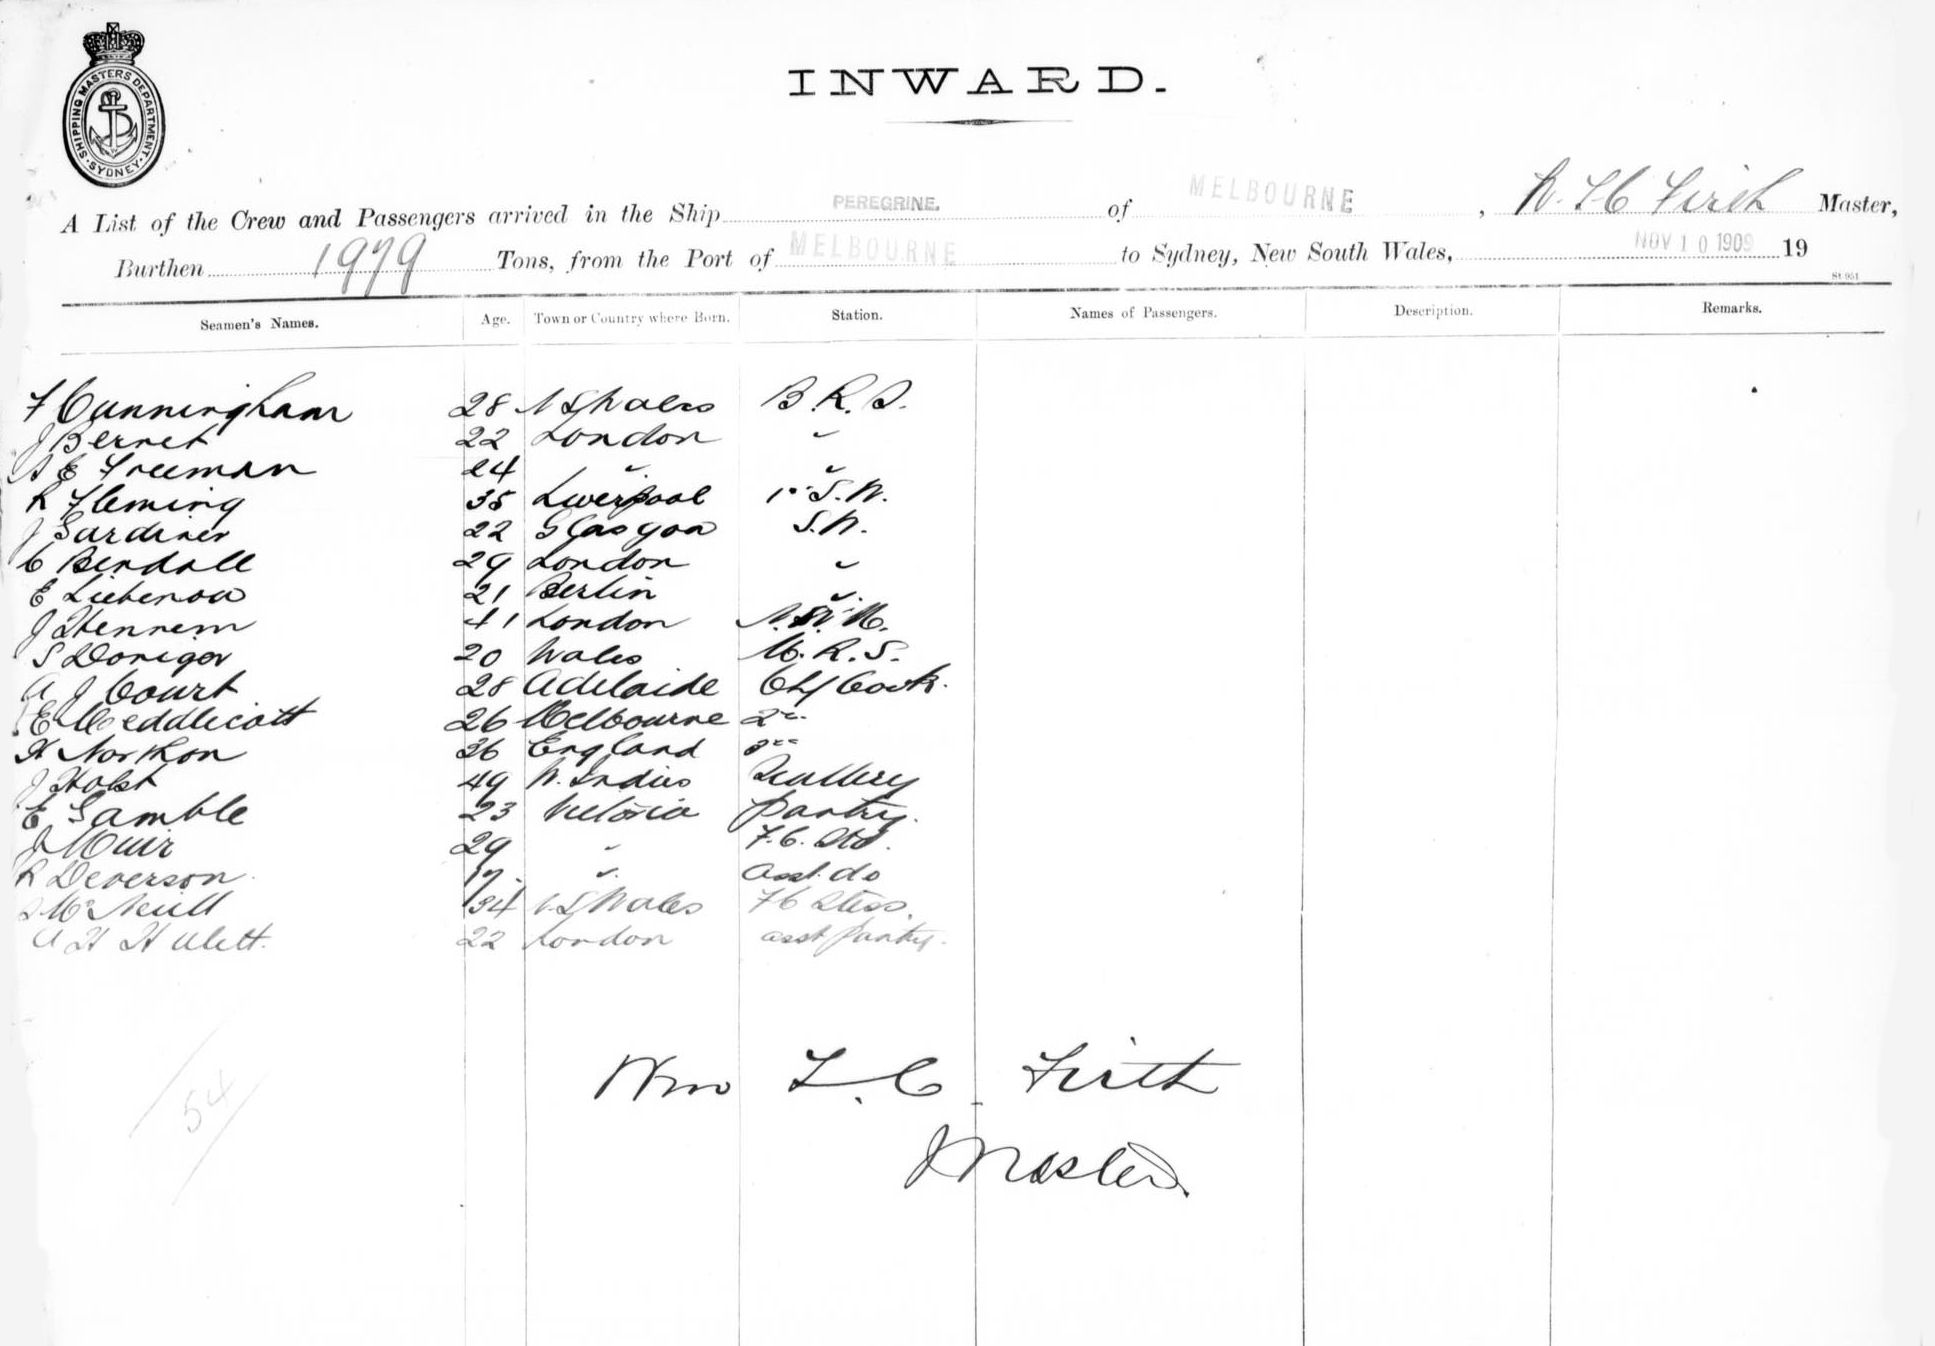 SHIPPING MASTERS DEPARTMENT
SYDNEY
INWARD.
A List of the Crew and Passengers arrived in the Ship PEREGRINE. of MELBOURNE, W. F. C Firth Master,
Burthen 1979 Tons, from the Port of MELBOURNE to Sydney, New South Wales, NOV 10 1909 19
St 951
Seamen's Names. Age. Town or Country where Born. Station. Names of Passengers. Description. Remarks.
F Cunningham 28 N S Wales B. R. S.
J Bernet 22 London "
A E Freeman 24 " "
R Fleming 35 Liverpool 1st S. W.
J Gardiner 22 Glasgow S. W.
C Bendall 29 London "
E Liebenow 21 Berlin "
J Hennem 41 London
S Doriger 20 Wales M. R. S.
A J Court 28 Adelaide Chf Cook.
E Meddlicott 26 Melbourne 2nd
H Northon 36 England
J Holst 49 W. Indies Scullery
E Gamble 23 Victoria Pantry.
J Muir 29 " F. C. Std.
R Deverson 17 " asst. do
McNeill 34 N. S Wales F C Stess.
A H Hulett. 22 London asst pantry.
54
Wm F. C. Firth
Master.